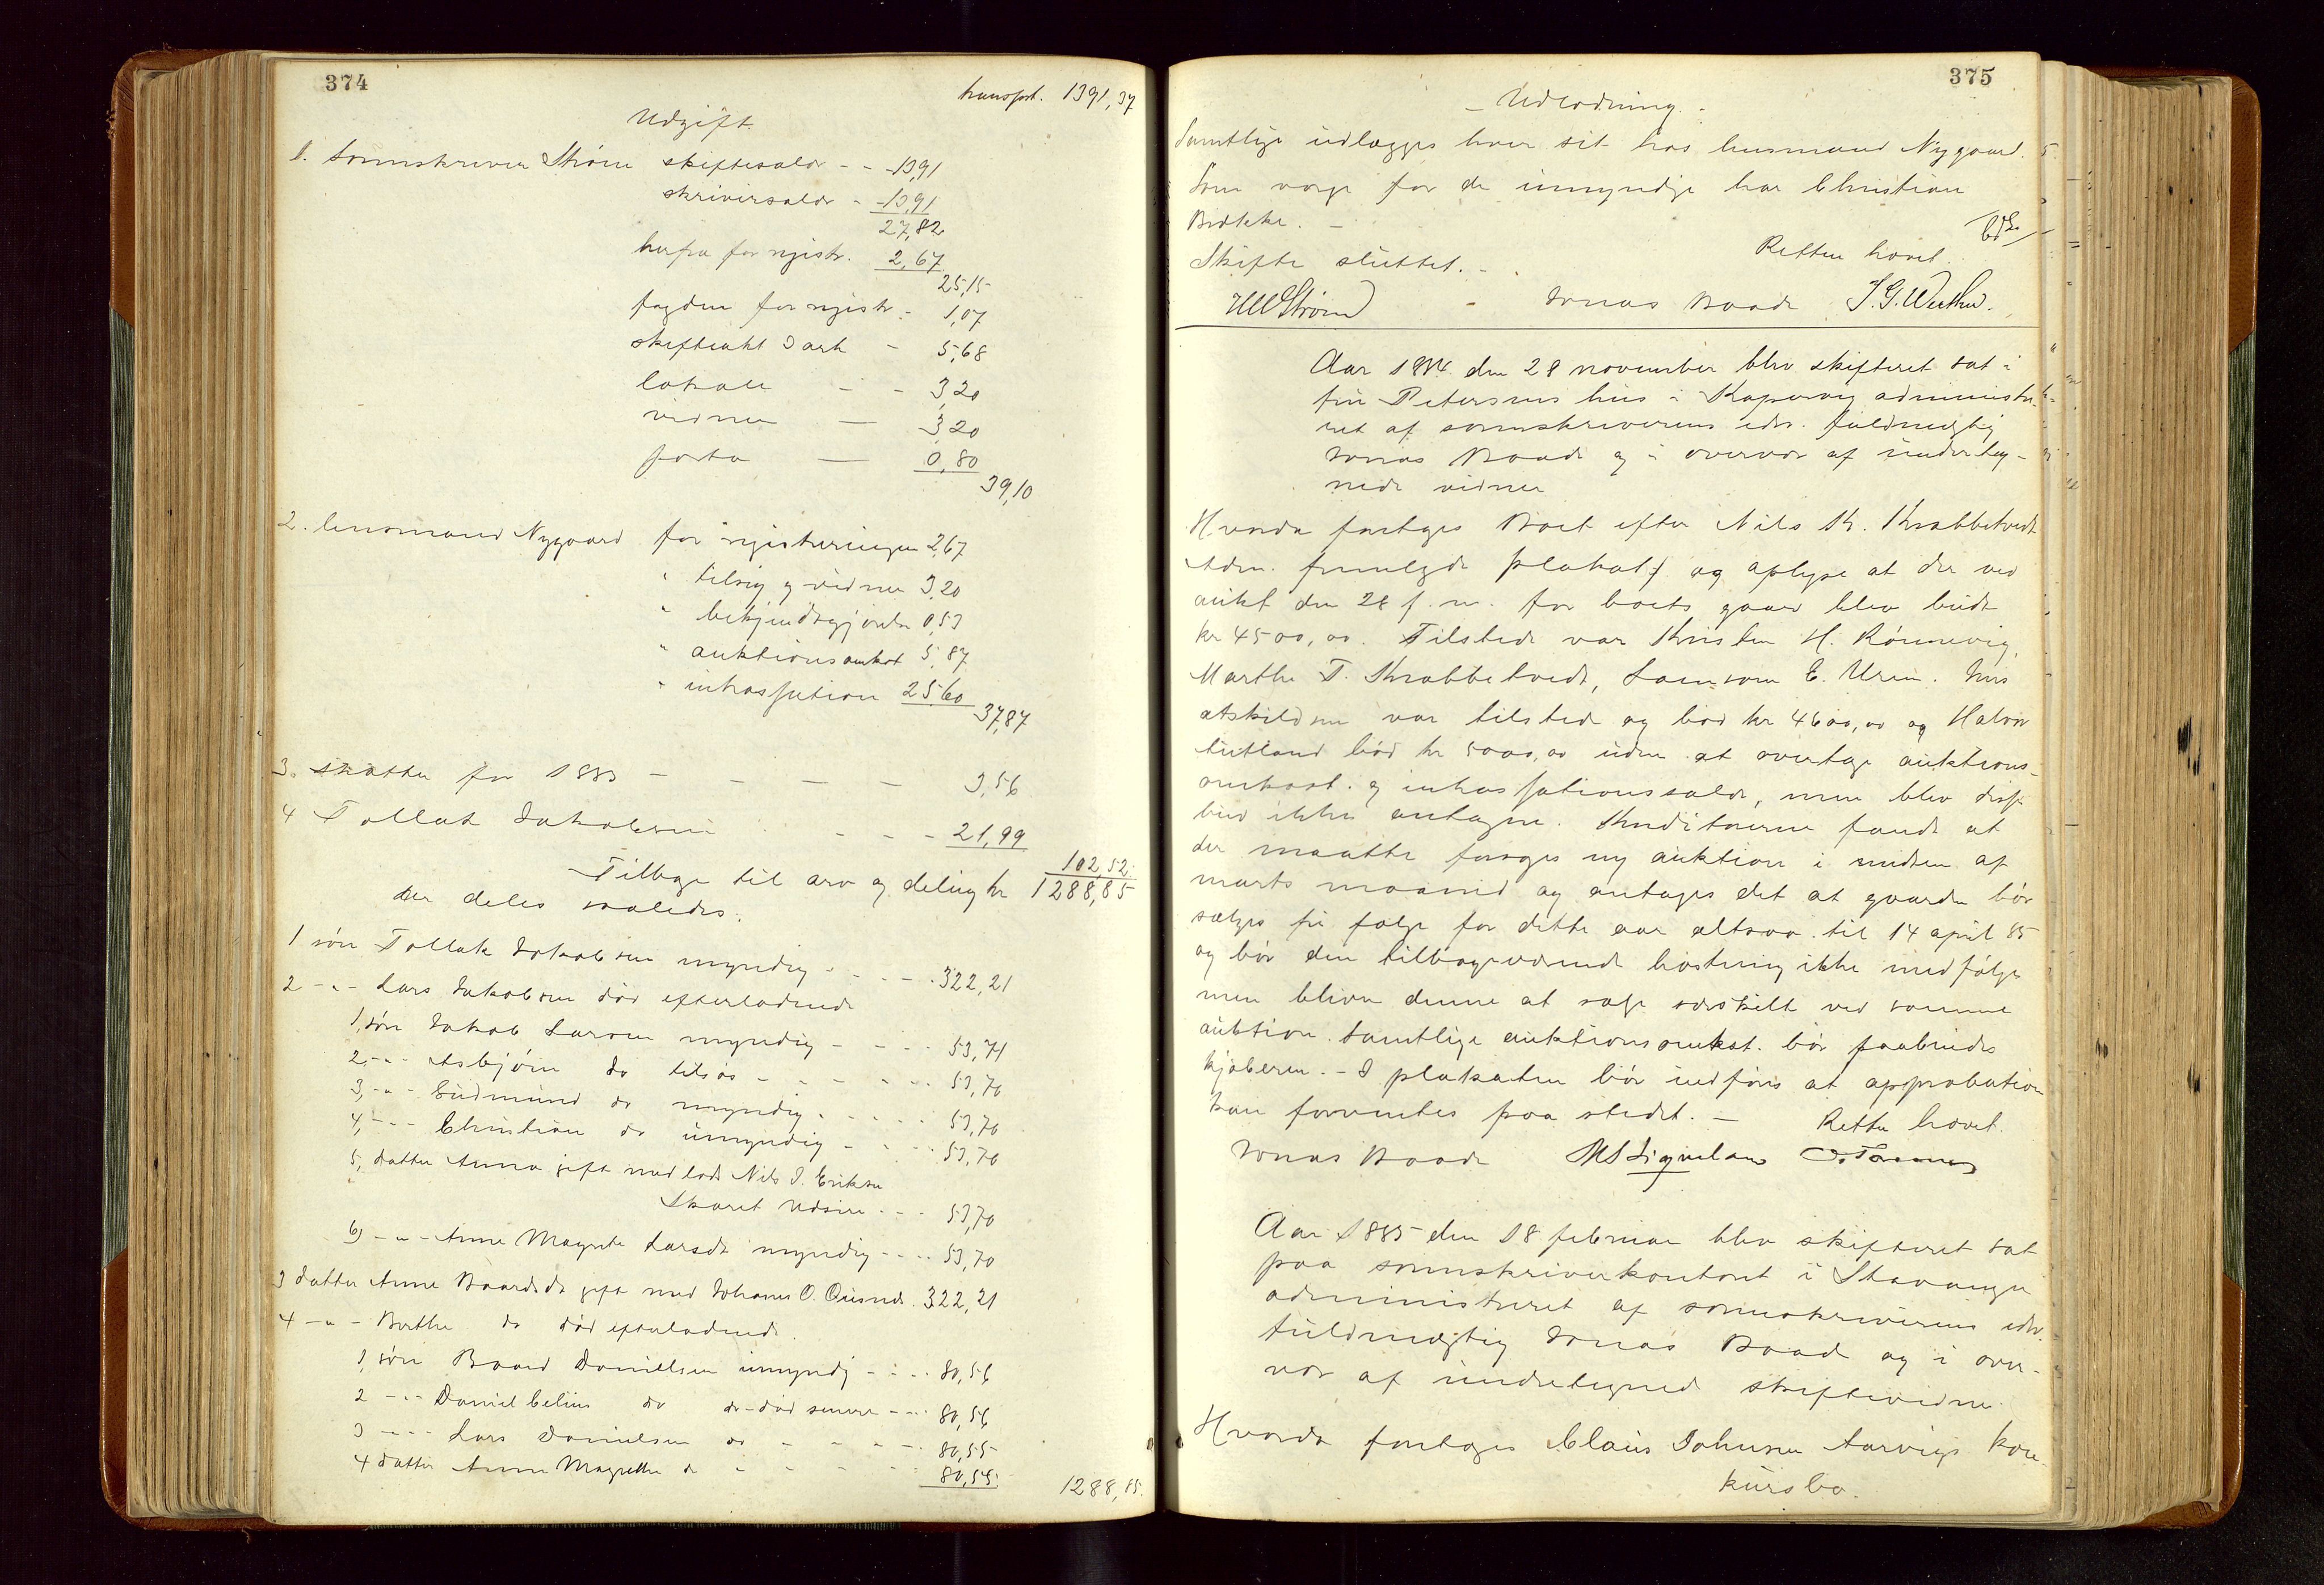 374
transport. 1391,37
Udgift.
1. Sorenskriver Strøm skiftesalær - - 13,91
skriversalær - 13,91
27,82
herfra for registr. 2,67
25,15
fogden for registr. - 1,07
skifteakt 3 ark - 5,68
lokale - - 3,20
vidner — 3,20
porto — 0,80
39,10
2. lensmand Nygaard for registreringen 2,67
" tilsig. og vidner 3,20
" bekjendtgjørelse 0,53
" auktionsomkost 5,87
" inkassation 25,60
37,87
3. skatter for 1883 - - - - 3,56
4 Tollak Jakobsen - - - 21,99
102,52
Tilbage til arv og deling kr 1288,85
der deles saaledes:
1 søn Tollak Jakobsen myndig - - - - 322,21
2 -"- Lars Jakobsen død efterladende
1, søn Jakob Larsen myndig - - - - 53,71
2, -"- Asbjørn do tilsøs - - - - - 53,70
3, -"- Gudmund do myndig - - - - 53,70
4, -"- Christian do umyndig - - - - 53,70
5, datter Anna gift med lods Nils J. Eriksen
Skaret Udsire - - - 53,70
6) -"- Anne Magrete Larsdr myndig - - - - 53,70
3 datter Anne Baardsdr gift med Johannes O. Qvisnes. 322,21
4 -"- Berthe do død efterladende.
1, søn Baard Danielsen umyndig - - - - 80,56
2 -"- Daniel Celius do do - død senere - - - 80,56
3 -"- Lars Danielsen do - - - - - 80,55
4 datter Anne Magrethe do - - - - - 80,55
1288,85.
375
- Udlodning. -
Samtlige udlægges hver sit hos lensmand Nygaard.
Som værge for de umyndige har Christian
Bratthe. -
Skifte sluttet. - Retten hævet.
HWStrøm - Jonas Baade J. G. Werther.
Aar 1884 den 28 november blev skifteret sat i
fru Petersens hus i Kopervig administre-
ret af sorenskriverens edsv. fuldmægtig
Jonas Baade og i overvær af underteg-
nede vidner
Hvorda foretoges Boet efter Nils K. Krabbetvedt
Adm. fremlagde plakat og oplyse at der ved
aukt den 28 f. m. for boets gaard blev budt
kr 4500,00. Tilstede var Kristen H. Rønnevig,
Marthe T. Krabbetvedt, Samson E. Uren. Jens
Atskildsen var tilstede og bød kr 4600,00 og Halvor
Lutland bød kr 5000,00 uden at overtage auktions-
omkost. og inkassationssalær, men blev disse
bud ikke antagne. Kreditorerne fandt at
der maatte foregaa ny auktion i midten af
marts maaned og antages det at gaarden bør
sælges fri følge for dette aar altsaa til 14 april 85
og bør den tilbageværende høstning ikke medfølge
men bliver denne at sælge særskilt ved samme
auktion. Samtlige auktionsomkost. bør paabindes
kjøberen. - I plakaten bør indføres at approbation
kan forventes paa stedet. - Retten hævet.
Jonas Baade
Aar 1885 den 18 februar blev skifteret sat
paa sorenskriverkontoret i Stavanger
administreret af sorenskriverens edsv.
fuldmægtig Jonas Baade og i over-
vær af undertegnede skiftevidner.
Hvorda foretoges Claus Johnsen Aarvigs kon-
kursbo.